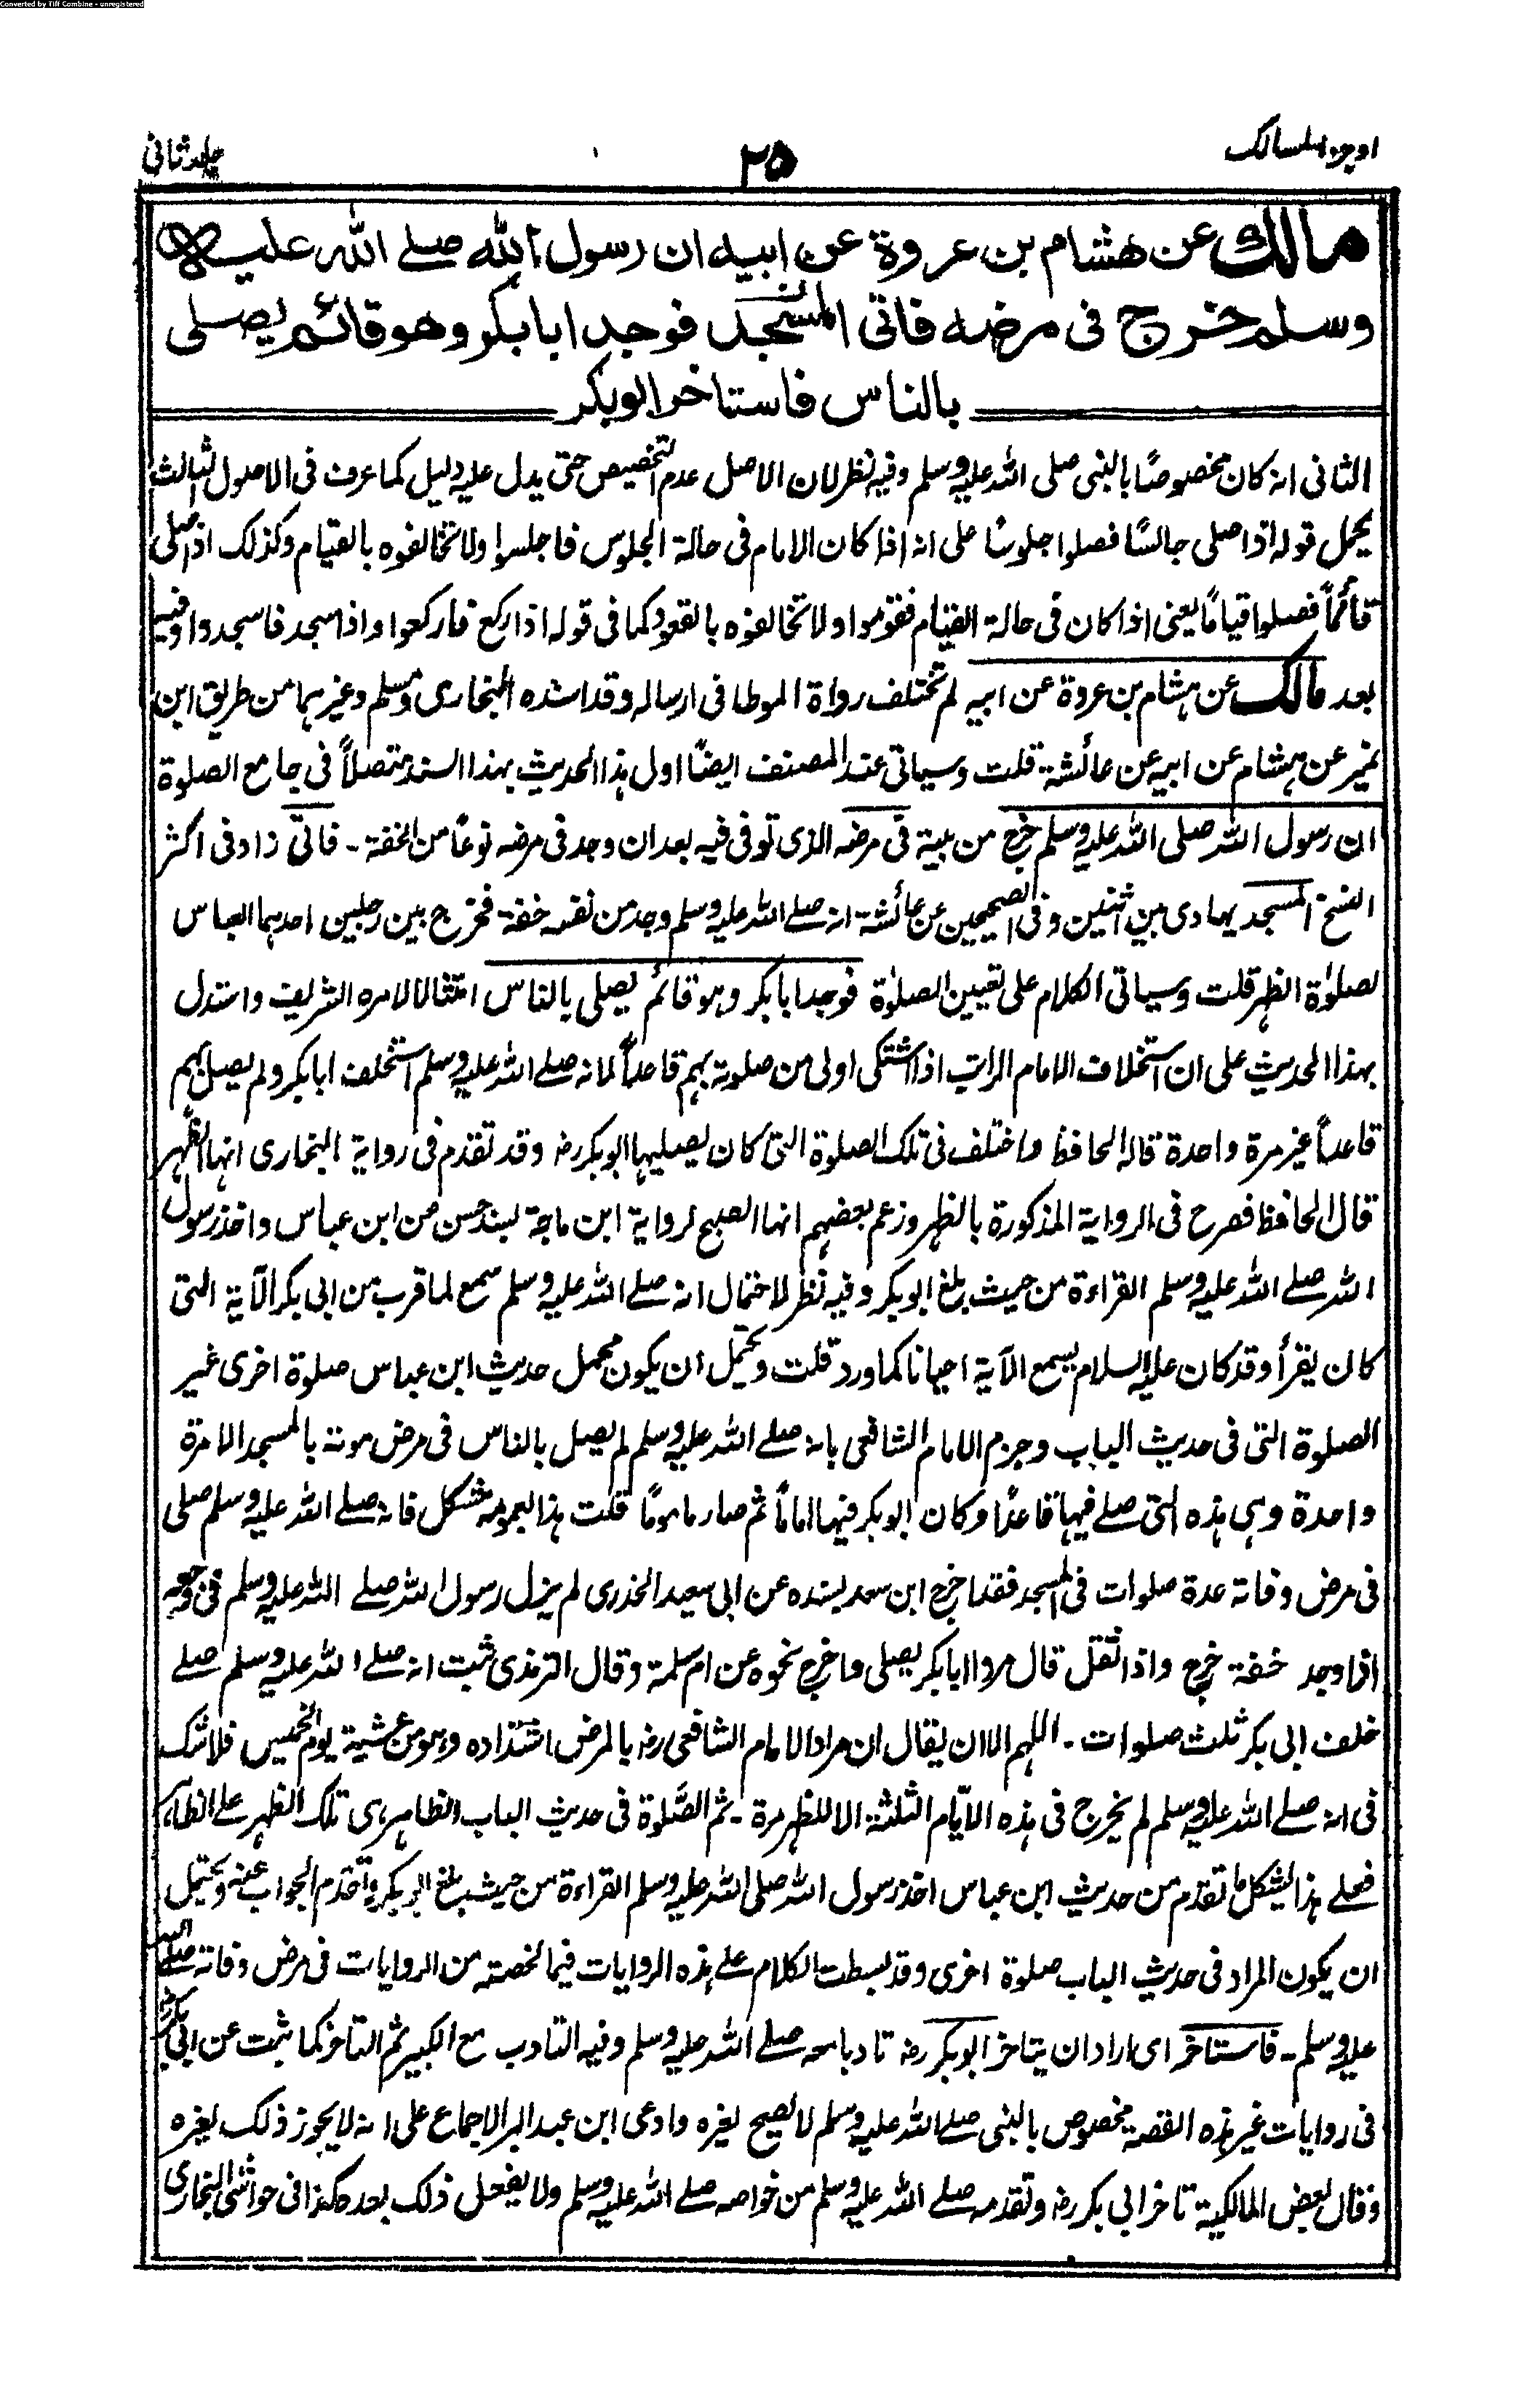 Converted by Tiff Combine - unregistered
اوجز المسالك
٢٥
جلد ثانی
مالك عن هشام بن عروة عن ابيه ان رسول الله صلے الله عليه
وسلم خرج فی مرضه فاتی المسجد فوجد ابا بكر وهو قائم يصلی
بالناس فاستاخر ابو بكر
الثانی انه كان مخصوصًا بالنبی صلی الله عليه وسلم وفيه نظر لان الاصل عدم التخصيص حتی يدل عليه دليل كما عرف فی الاصول الثالث
يحمل قوله اذا صلی جالسًا فصلوا جلوسًا علی انه اذا كان الامام فی حالة الجلوس فاجلسوا ولا تخالفوه بالقيام وكذلك اذا صلی
قائماً فصلوا قياماً يعنی اذا كان فی حالة القيام فقوموا ولا تخالفوه بالقعود كما فی قوله اذا ركع فاركعوا واذا سجد فاسجدوا وفيه
بعد مالك عن هشام بن عروة عن ابيه لم تختلف رواة الموطا فی ارساله وقد اسنده البخاری ومسلم وغيرهما من طريق ابن
نمير عن هشام عن ابيه عن عائشة قلت وسياتی عند المصنف ايضًا اول هذا الحديث بهذا السند متصلاً فی جامع الصلوة
ان رسول الله صلی الله عليه وسلم خرج من بيته فی مرضه الذی توفی فيه بعد ان وجد فی مرضه نوعًا من الخفة - فاتی زاد فی اكثر
النسخ المسجد يهادی بين اثنين وفی الصحيحين عن عائشة انه صلے الله عليه وسلم وجد من نفسه خفة فخرج بين رجلين احدهما العباس
لصلوٰة الظهر قلت وسياتی الكلام علی تعيين الصلوٰة فوجد ابا بكر وهو قائم يصلی بالناس امتثالا لامره الشريف واستدل
بهذا الحديث علی ان استخلاف الامام الراتب اذا اشتكی اولی من صلوته بهم قاعداً لانه صلے الله عليه وسلم استخلف ابا بكر ولم يصل بهم
قاعداً غير مرة واحدة قاله الحافظ واختلف فی تلك الصلوة التی كان يصليها ابو بكر رضـ وقد تقدم فی رواية البخاری انها الظهر
قال الحافظ فصرح فی الرواية المذكورة بالظهر وزعم بعضهم انها الصبح لرواية ابن ماجة بسند حسن من ابن عباس واخذ رسول
الله صلے الله عليه وسلم القراءة من حيث بلغ ابو بكر وفيه نظر لاحتمال انه صلے الله عليه وسلم سمع لما قرب من ابی بكر الآية التی
كان يقرأ وقد كان عليه السلام يسمع الآية احيانا كما ورد قلت ويحتمل ان يكون محمل حديث ابن عباس صلوة اخری غير
الصلوة التی فی حديث الباب وجزم الامام الشافعی بانه صلے الله عليه وسلم لم يصل بالناس فی مرض موته بالمسجد الا مرة
واحدة وهی هذه التی صلے فيها قاعدًا وكان ابو بكر فيها اماماً ثم صار ماموماً قلت هذا بعمومه مشكل فانه صلے الله عليه وسلم صلی
فی مرض وفاته عدة صلوات فی المسجد فقد اخرج ابن سعد بسنده عن ابی سعيد الخدری لم يزل رسول الله صلے الله عليه وسلم فی وجعه
اذا وجد خفة خرج واذا ثقل قال مروا ابا بكر يصلی واخرج نحوه عن ام سلمة وقال الترمذی ثبت انه صلے الله عليه وسلم صلے
خلف ابی بكر ثلث صلوات - اللهم الا ان يقال ان مراد الامام الشافعی رضـ بالمرض اشتداده وهو من عشية يوم الخميس فلا شك
فی انه صلے الله عليه وسلم لم يخرج فی هذه الايّام الثلثة الا للظهر مرة - ثم الصّلوة فی حديث الباب الظاهر هی تلك الظهر علی الظاهر
فعلے هذا يشكل ما تقدم من حديث ابن عباس اخذ رسول الله صلی الله عليه وسلم القراءة من حيث بلغ ابو بكر وتقدم الجواب عنه ويحتمل
ان يكون المراد فی حديث الباب صلوة اخری وقد بسطت الكلام علے هذه الروايات فيما لخصته من الروايات فی مرض وفاته صلے الله
عليه وسلم - فاستاخر ای اراد ان يتاخر ابو بكر رضـ تادبا معه صلے الله عليه وسلم وفيه التادب مع الكبير ثم التاخر كما ثبت عن ابی بكر رضـ
فی روايات غير هذه القصة مخصوص بالنبی صلے الله عليه وسلم لا يصح لغيره وادعی ابن عبد البر الاجماع علی انه لا يجوز ذلك لغيره
وقال بعض المالكية تاخر ابی بكر رضـ وتقدمه صلے الله عليه وسلم من خواصه صلے الله عليه وسلم ولا يفعل ذلك بعده هكذا فی حواشی البخاری